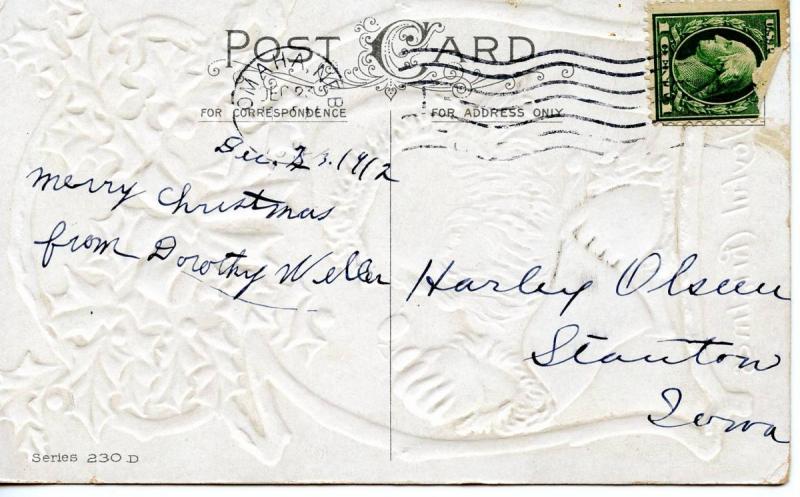 POST CARD
1 CENT 1
U.S.
OMAHA, NEB
DEC 23
FOR CORRESPONDENCE
FOR ADDRESS ONLY
Dec. 23. 1912
merry Christmas
from Dorothy Weller
Harley Olseen
Stanton
Iowa
Series 230 D